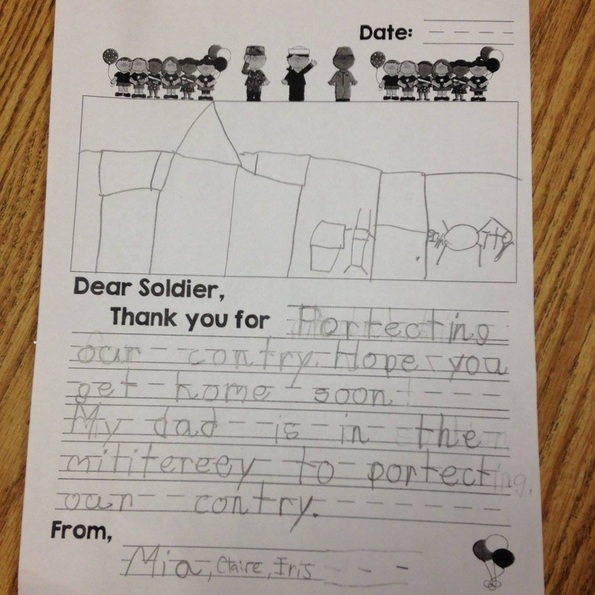 Date:
Dear Soldier,
Thank you for Portecting
our contry. Hope you
get home soon.
My dad is in the
mititereey to portecting.
our contry.
From,
Mia, Claire, Iris